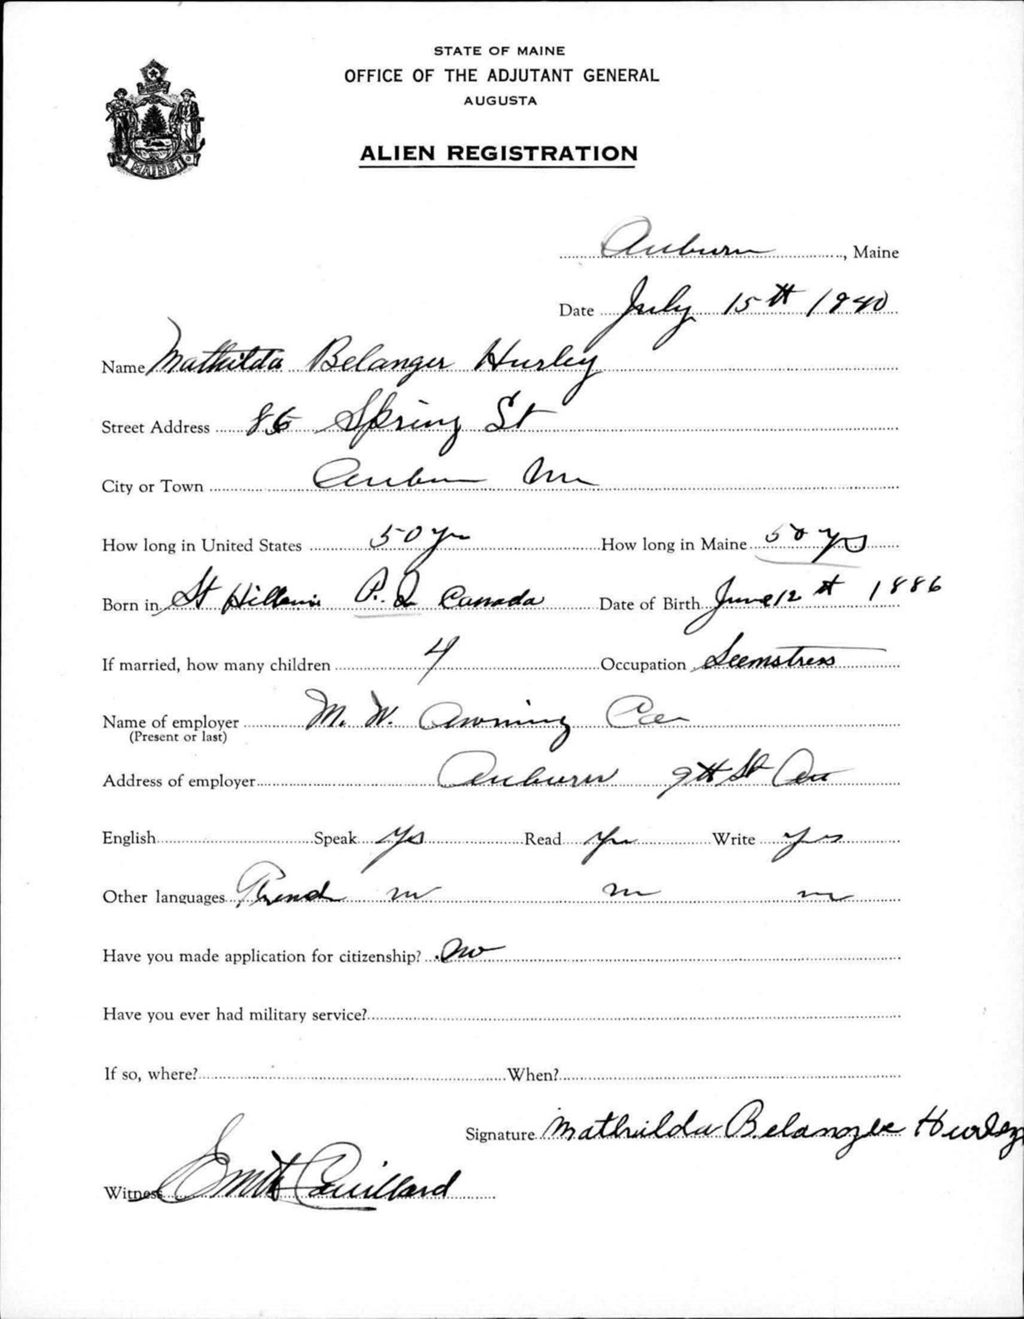 STATE OF MAINE
OFFICE OF THE ADJUTANT GENERAL
AUGUSTA
ALIEN REGISTRATION
MAINE
Auburn, Maine
Date July 15th 1940
Name Mathilda Belanger Hurley
Street Address 86 Spring St
City or Town Auburn Me
How long in United States 50 yrs How long in Maine 50 yrs
Born in St P.Q Canada Date of Birth June 12th 1886
If married, how many children 4 Occupation Seemstress
Name of employer M. W. Awning Co
(Present or last)
Address of employer Auburn 9th St
English Speak yes Read yes Write yes
Other languages
Have you made application for citizenship? No
Have you ever had military service?
If so, where? When?
Signature Mathilda Belanger Hurley
Witness